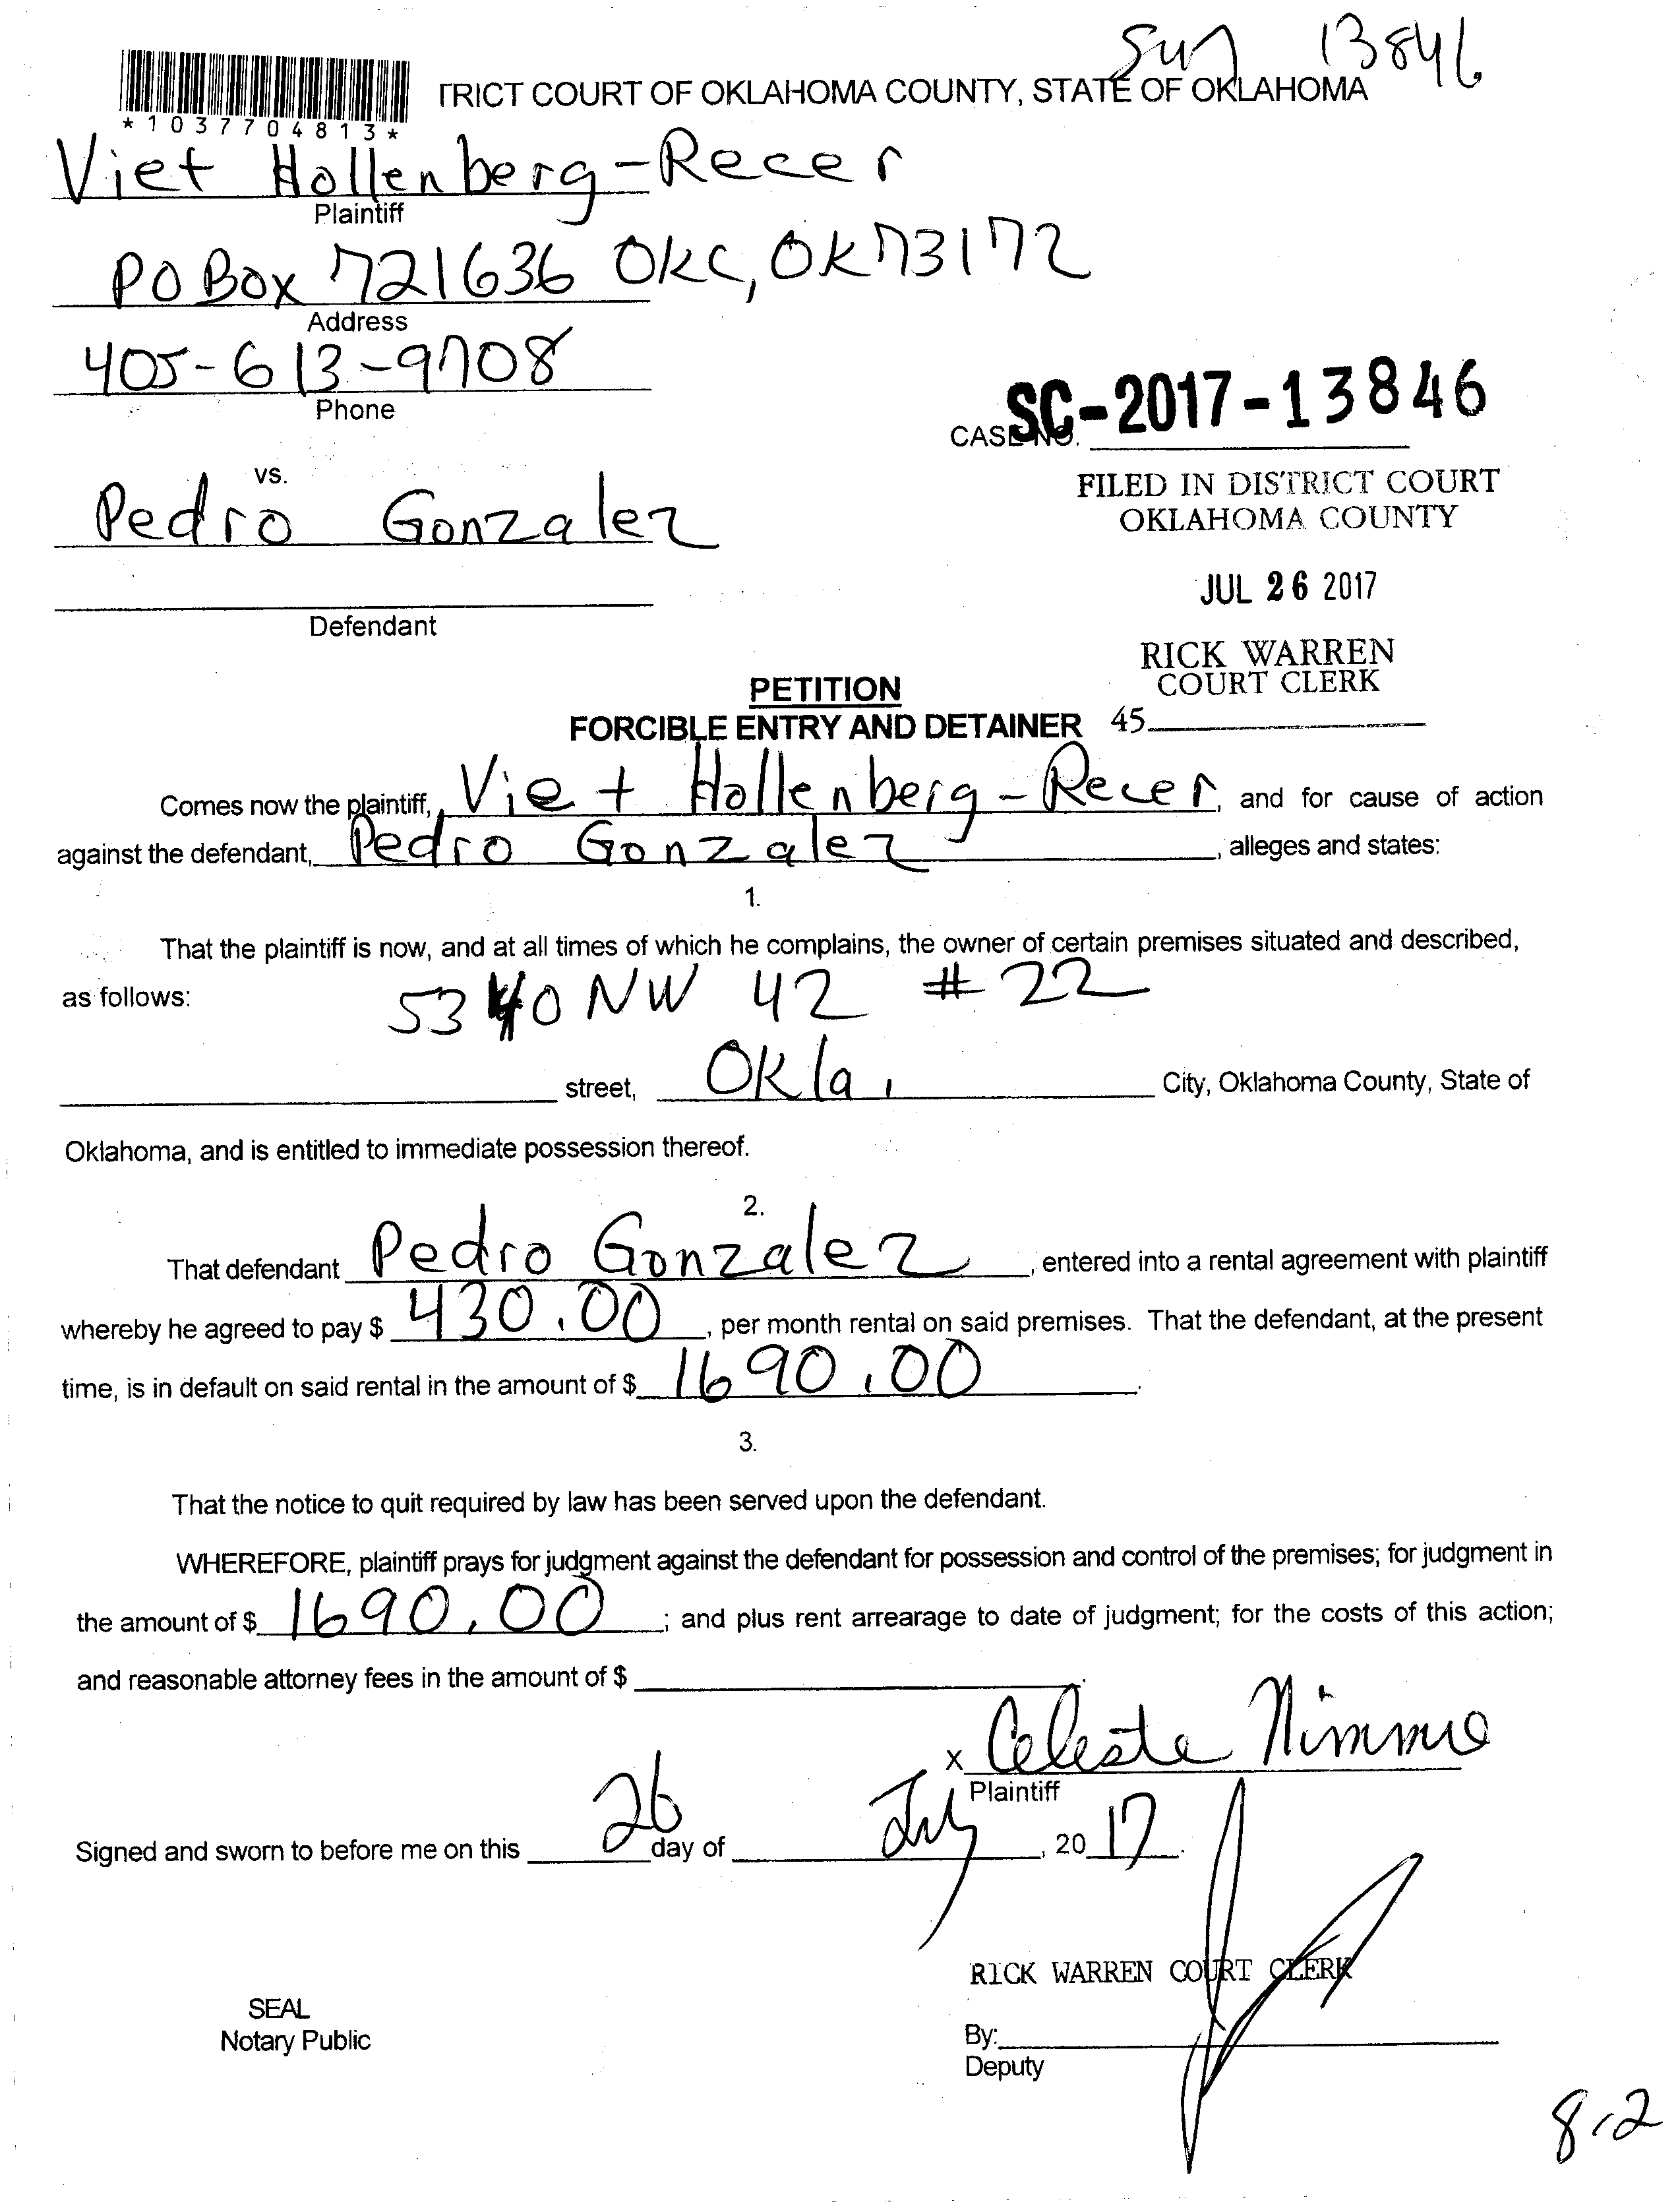 13846
TRICT COURT OF OKLAHOMA COUNTY, STATE OF OKLAHOMA
*1037704813*
Viet Hollenberg-Recer
Plaintiff
PO Box 721636 OKC, OK 73172
Address
405-613-9708
Phone
SC-2017-13846
CASE NO.
vs.
Pedro Gonzalez
FILED IN DISTRICT COURT
OKLAHOMA COUNTY
JUL 26 2017
Defendant
RICK WARREN
COURT CLERK
PETITION
FORCIBLE ENTRY AND DETAINER
45
Comes now the plaintiff, Viet Hollenberg-Recer, and for cause of action
against the defendant, Pedro Gonzalez, alleges and states:
1.
That the plaintiff is now, and at all times of which he complains, the owner of certain premises situated and described,
as follows: 5340 NW 42 #22
street, Okla, City, Oklahoma County, State of
Oklahoma, and is entitled to immediate possession thereof.
2.
That defendant Pedro Gonzalez, entered into a rental agreement with plaintiff
whereby he agreed to pay $ 430.00, per month rental on said premises. That the defendant, at the present
time, is in default on said rental in the amount of $ 1690.00.
3.
That the notice to quit required by law has been served upon the defendant.
WHEREFORE, plaintiff prays for judgment against the defendant for possession and control of the premises; for judgment in
the amount of $ 1690.00; and plus rent arrearage to date of judgment; for the costs of this action;
and reasonable attorney fees in the amount of $
x Celeste Nimmo
Plaintiff
Signed and sworn to before me on this 26 day of July, 2017.
RICK WARREN COURT CLERK
SEAL
Notary Public
By:
Deputy
8-2